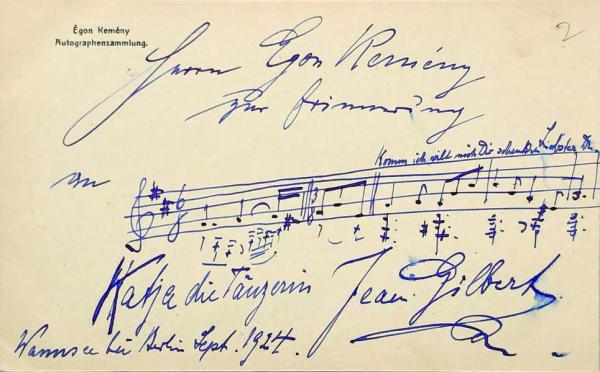 Égon Kemény
Autographensammlung.
2
Herrn Egon Kemény
zur Erinnerung
an
Komm ich will mich Dir schenken
6 8
3 8
Katja die Tänzerin Jean Gilbert
Wannsee bei Berlin Sept. 1924.